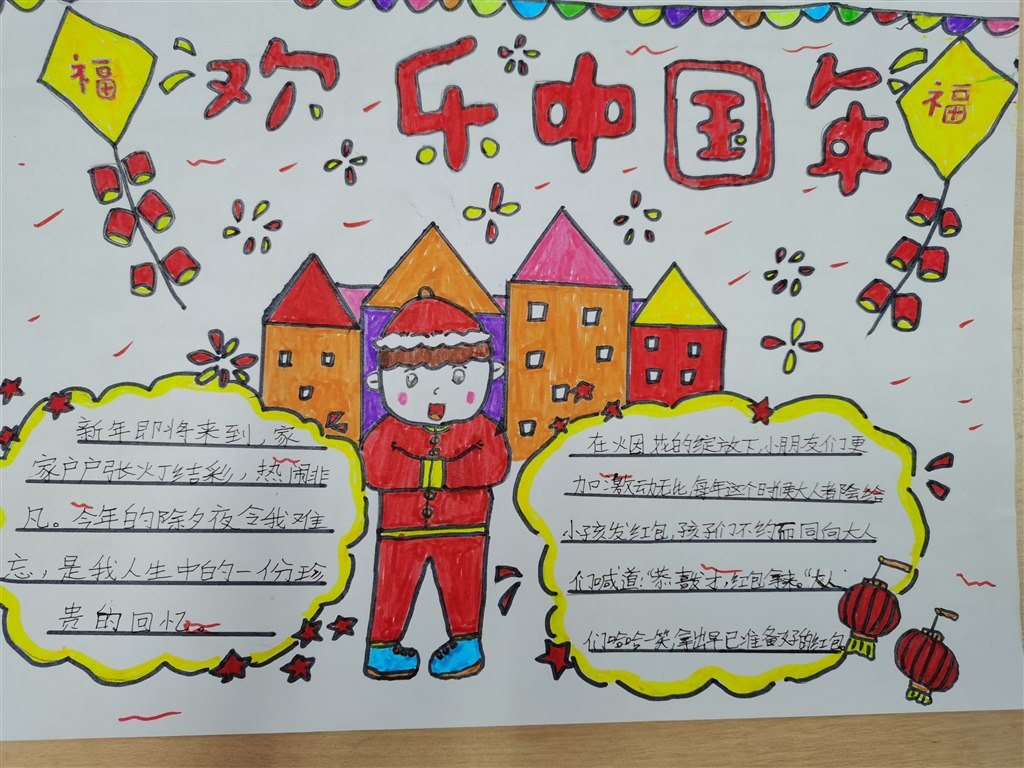 欢乐中国年
福
福
新年即将来到,家
家户户张灯结彩,热闹非
凡。今年的除夕夜令我难
忘,是我人生中的一份珍
贵的回忆
在火因花的绽放下,小朋友们更
加激动无比,每年这个时候大人都会给
小孩发红包,孩子们不约而同向大人
们喊道:"恭喜发才,红包拿来。"大人
们哈哈一笑,拿出早已准备好的红包